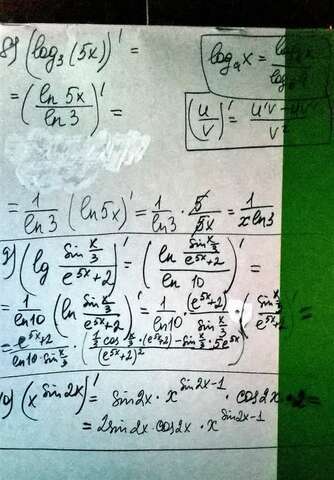 8) (log₃(5x))' =
logₐx =
= (ln 5x / ln 3)' =
(u/v)' = (u'v - uv') / v²
= 1/ln3 (ln5x)' = 1/ln3 · 5/5x = 1/(x ln3)
9) (lg (sin x/3)/(e^(5x)+2))' = (ln (sin x/3)/(e^(5x)+2) / ln 10)' =
= 1/ln10 (ln (sin x/3)/(e^(5x)+2))' = 1/ln10 · (e^(5x)+2)/(sin x/3) · ((sin x/3)/(e^(5x)+2))' =
= (e^(5x)+2)/(ln10 · sin x/3) · (1/3 cos x/3 · (e^(5x)+2) - sin x/3 · 5e^(5x))/(e^(5x)+2)²
10) (x^(sin2x))' = sin2x · x^(sin2x-1) · cos2x · 2 =
= 2sin2x · cos2x · x^(sin2x-1)